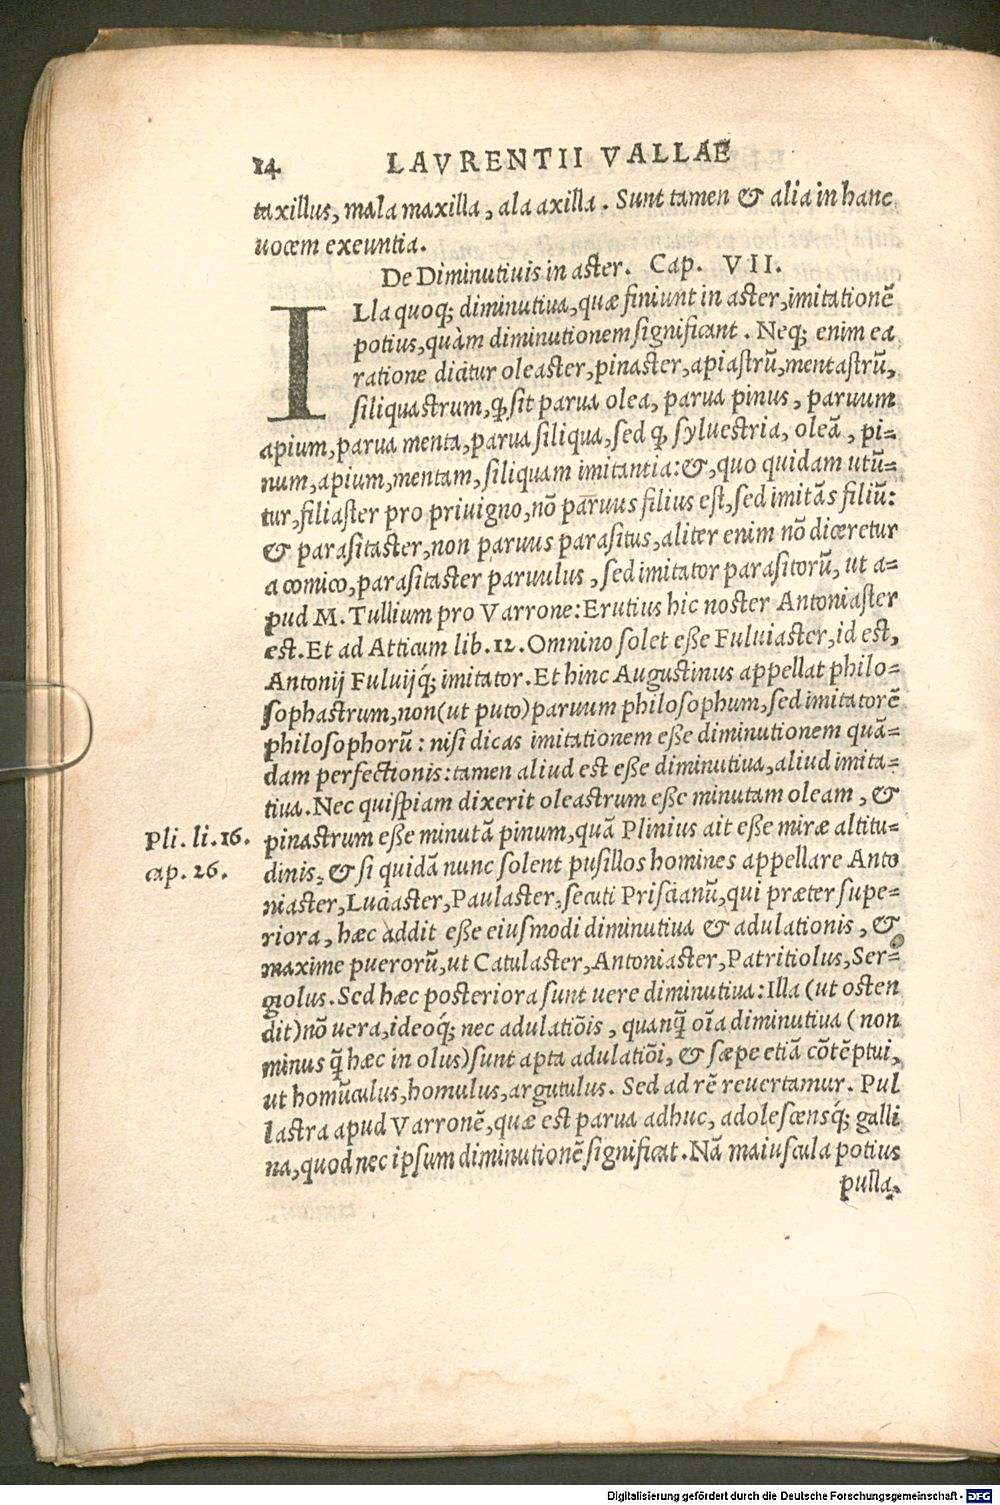 14 LAVRENTII VALLAE
taxillus, mala maxilla, ala axilla. Sunt tamen & alia in hanc
uocem exeuntia.
De Diminutiuis in aster. Cap. VII.
ILla quoq; diminutiua, quæ finiunt in aster, imitationē
potius, quàm diminutionem significant. Neq; enim ea
ratione dicitur oleaster, pinaster, apiastrū, mentastrū,
siliquastrum, ꝙ sit parua olea, parua pinus, paruum
apium, parua menta, parua siliqua, sed ꝙ syluestria, oleā, pi=
num, apium, mentam, siliquam imitantia: &, quo quidam utū=
tur, filiaster pro priuigno, nō paruus filius est, sed imitās filiū:
& parasitaster, non paruus parasitus, aliter enim nō diceretur
a comico, parasitaster paruulus, sed imitator parasitorū, ut a=
pud M. Tullium pro Varrone: Erutius hic noster Antoniaster
est. Et ad Atticum lib. 12. Omnino solet eße Fuluiaster, id est,
Antonij Fuluijq́; imitator. Et hinc Augustinus appellat philo=
sophastrum, non (ut puto) paruum philosophum, sed imitatorē
philosophorū: nisi dicas imitationem eße diminutionem quā=
dam perfectionis: tamen aliud est eße diminutiua, aliud imita=
tiua. Nec quispiam dixerit oleastrum eße minutam oleam, &
Pli. li. 16. pinastrum eße minutā pinum, quā Plinius ait eße miræ altitu=
cap. 26. dinis, & si quidā nunc solent pusillos homines appellare Anto
niaster, Luciaster, Paulaster, secuti Priscianū, qui præter supe=
riora, hæc addit eße eiusmodi diminutiua & adulationis, &
maxime puerorū, ut Catulaster, Antoniaster, Patritiolus, Ser=
giolus. Sed hæc posteriora sunt uere diminutiua: Illa (ut osten
dit) nō uera, ideoq́; nec adulatiōis, quanq̄ oīa diminutiua (non
minus q̄ hæc in olus) sunt apta adulatiōi, & sæpe etiā cōtēptui,
ut homūculus, homulus, argutulus. Sed ad rē reuertamur. Pul
lastra apud Varronē, quæ est parua adhuc, adolescensq́; galli
na, quod nec ipsum diminutionē significat. Nā maiuscula potius
pulla,
Digitalisierung gefördert durch die Deutsche Forschungsgemeinschaft - DFG